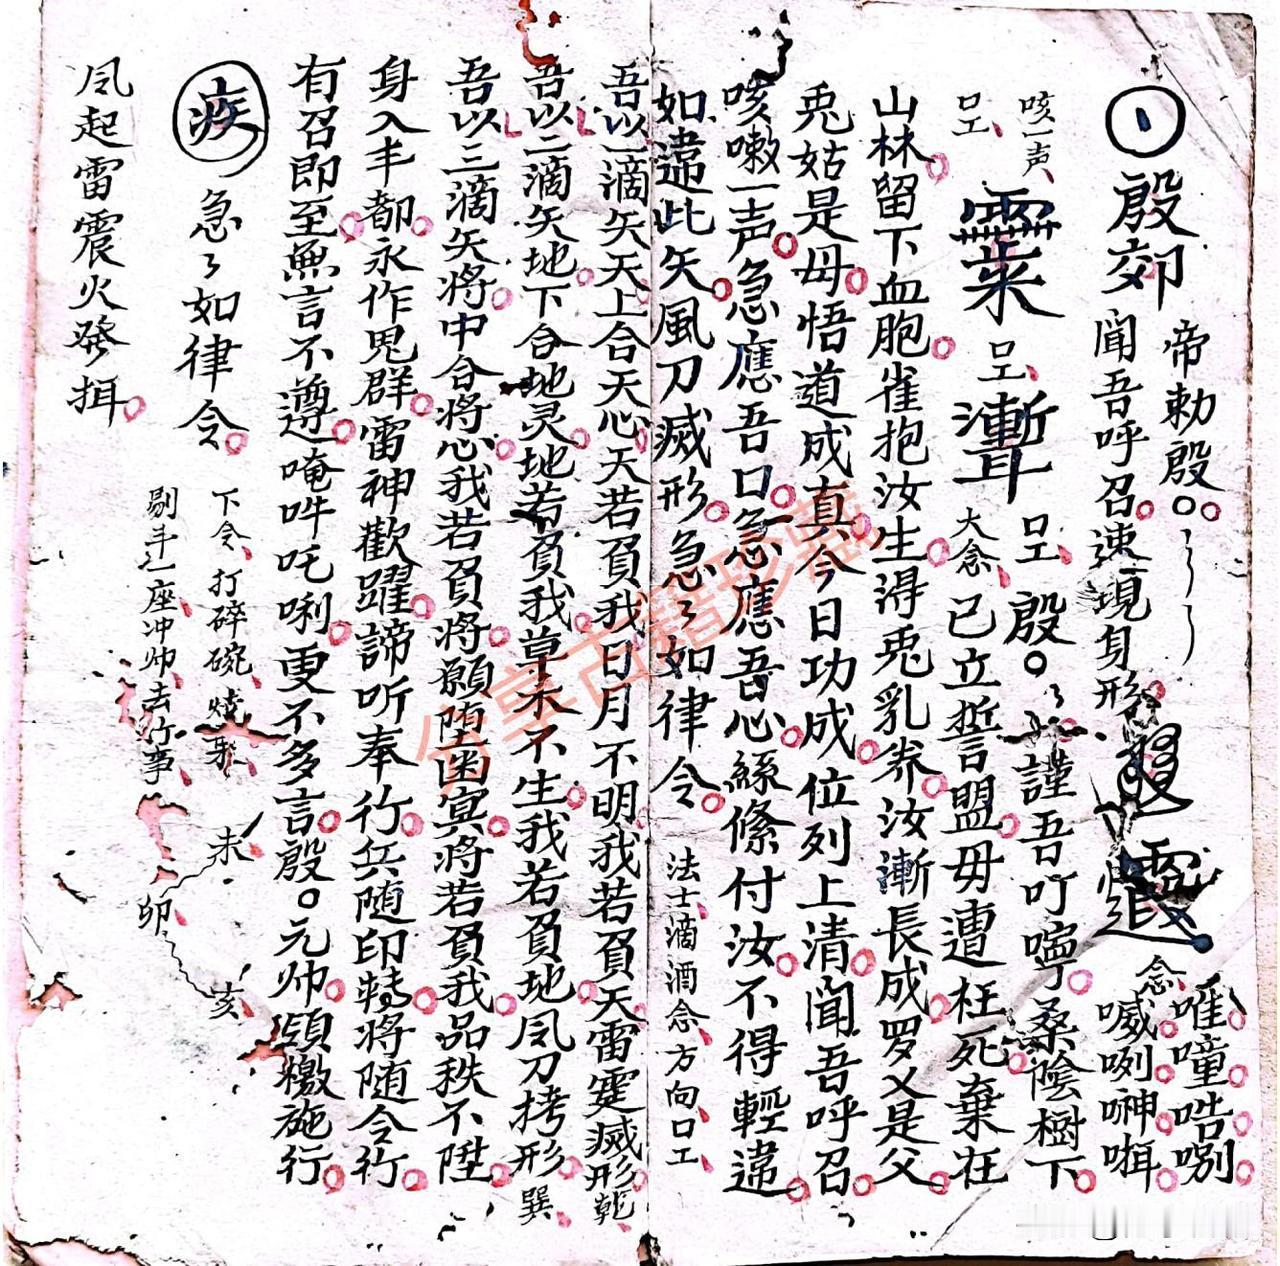 殷郊 帝勅殷○○
聞吾呼召速現身形
唯㗢唝唠唎
念 嘁咧呻㗌
咳一声
㕬 㕬 㕬 殷○ 謹吾叮嚀桑陰樹下
大念 已立誓盟毋遭枉死棄在
山林留下血胞雀抱汝生得兎乳养汝漸長成罗乂是父
兎姑是毋悟道成真今日功成位列上清聞吾呼召
咳嗽一声急應吾口急應吾心絲絛付汝不得輕違
如違此矢風刀滅形急〻如律令 法士滴酒念方向㕬
吾以一滴矢天上合天心天若負我日月不明我若負天雷霆滅形 乾
吾以二滴矢地下合地灵地若負我草木不生我若負地风刀拷形 巽
吾以三滴矢将中合将心我若負将願堕幽冥将若負我品秩不陞
身入丰都永作鬼群雷神歡躍諦听奉行兵随印轉将随令行
有召即至無言不遵唵吽吒唎更不多言殷○元帅領檄施行
疾 急〻如律令 下令打碎碗
剔斗上座冲帅去行事
未
卯
亥
风起雷震火發揖
分享古籍珍藏